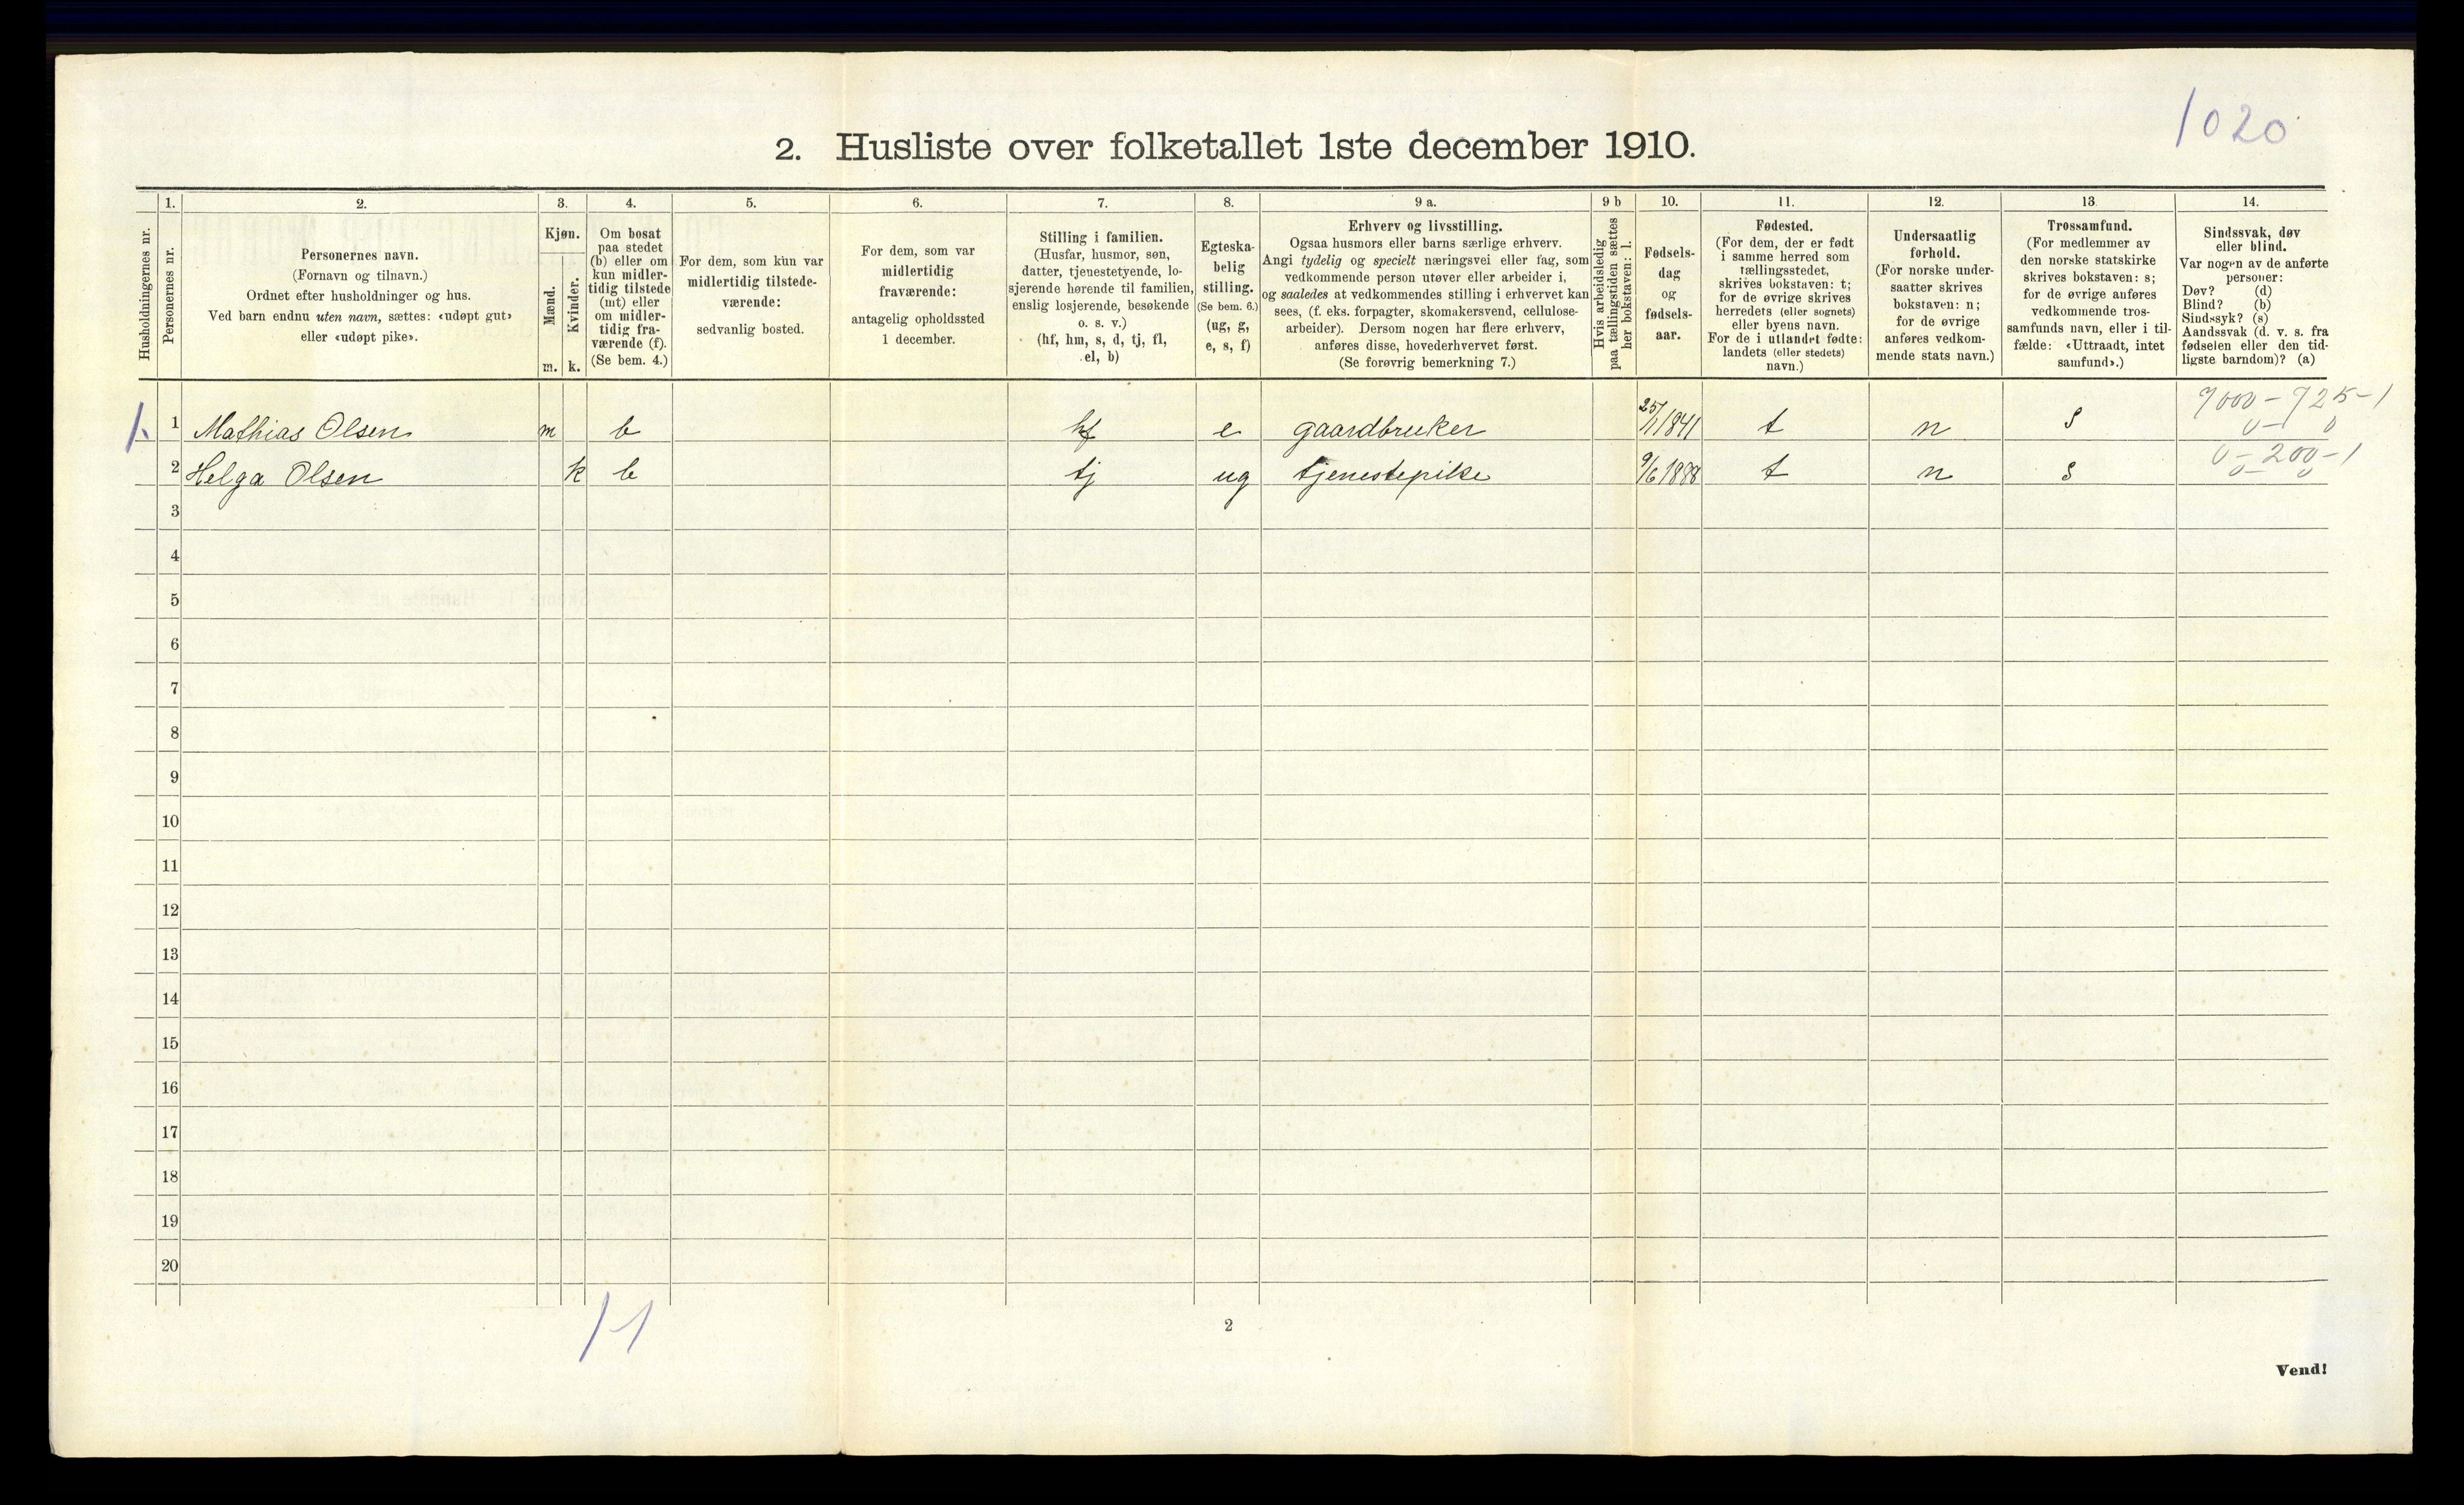 1020
2. Husliste over folketallet 1ste december 1910.
1. 2. 3. 4. 5. 6. 7. 8. 9 a. 9 b 10. 11. 12. 13 14.
Husholdningernes nr.
Personernes nr.
Personernes navn.
(Fornavn og tilnavn.)
Ordnet efter husholdninger og hus.
Ved barn endnu uten navn, sættes: «udøpt gut»
eller «udøpt pike».
Kjøn.
Mænd.
Kvinder.
m. k.
Om bosat
paa stedet
(b) eller om
kun midler-
tidig tilstede
(mt) eller
om midler-
tidig fra-
værende (f).
(Se bem. 4.)
For dem, som kun var
midlertidig tilstede-
værende:
sedvanlig bosted.
For dem, som var
midlertidig
fraværende:
antagelig opholdssted
1 december.
Stilling i familien.
(Husfar, husmor, søn,
datter, tjenestetyende, lo-
sjerende hørende til familien,
enslig losjerende, besøkende
o. s. v.)
(hf, hm, s, d, tj, fl,
el, b)
Egteska-
belig
stilling.
(Se bem. 6.)
(ug, g,
e, s, f)
Erhverv og livsstilling.
Ogsaa husmors eller barns særlige erhverv.
Angi tydelig og specielt næringsvei eller fag, som
vedkommende person utøver eller arbeider i,
og saaledes at vedkommendes stilling i erhvervet kan
sees, (f. eks. forpagter, skomakersvend, cellulose-
arbeider). Dersom nogen har flere erhverv,
anføres disse, hovederhvervet først.
(Se forøvrig bemerkning 7.)
Hvis arbeidsledig
paa tællingstiden sættes
her bokstaven: l.
Fødsels-
dag
og
fødsels-
aar.
Fødested.
(For dem, der er født
i samme herred som
tællingsstedet,
skrives bokstaven: t;
for de øvrige skrives
herredets (eller sognets)
eller byens navn.
For de i utlandet fødte:
landets (eller stedets)
navn.)
Undersaatlig
forhold.
(For norske under-
saatter skrives
bokstaven: n;
for de øvrige
anføres vedkom-
mende stats navn.)
Trossamfund.
(For medlemmer av
den norske statskirke
skrives bokstaven: s;
for de øvrige anføres
vedkommende tros-
samfunds navn, eller i til-
fælde: «Uttraadt, intet
samfund».)
Sindssvak, døv
eller blind.
Var nogen av de anførte
personer:
Døv? (d)
Blind? (b)
Sindssyk? (s)
Aandssvak (d. v. s. fra
fødselen eller den tid-
ligste barndom)? (a)
7000 - 725 - 1
0 - 0
1. 1 Mathias Olsen m b hf e gaardbruker 25/11 1841 t n s
0 - 200 - 1
0 - 0
2 Helga Olsen k b tj ug tjenestepike 9/6 1888 t n s
3
4
5
6
7
8
9
10
11
12
13
14
15
16
17
18
19
20
1-1
2
Vend!